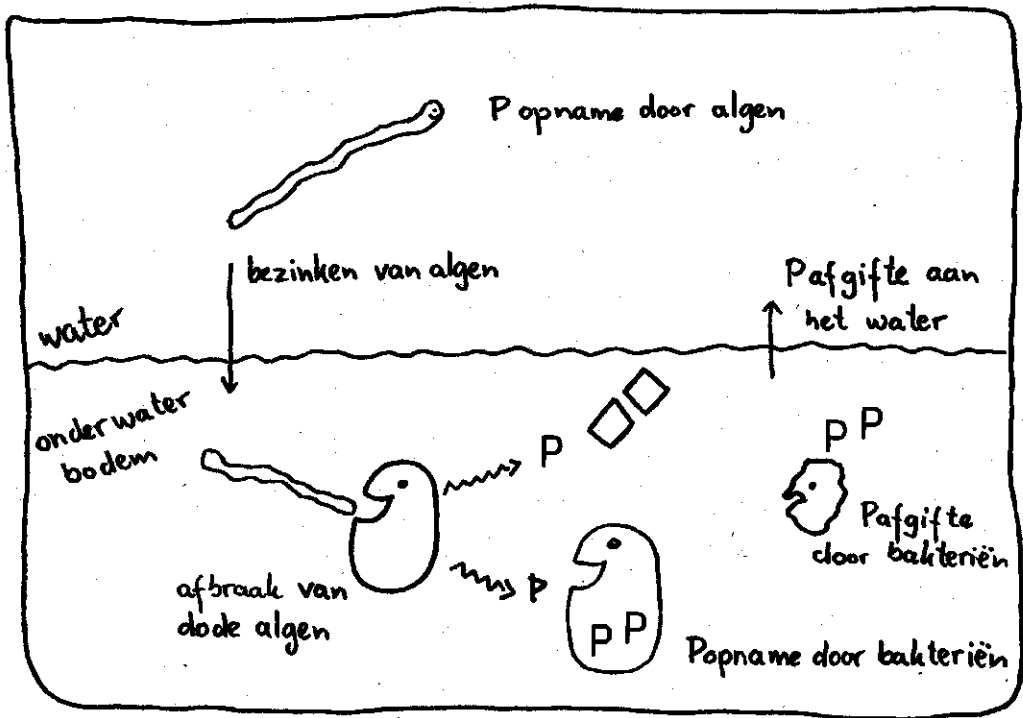 P opname door algen
bezinken van algen
P afgifte aan
het water
water
onderwater
bodem
P
P P
P afgifte
door bakteriën
P
afbraak van
dode algen
P P
P opname door bakteriën